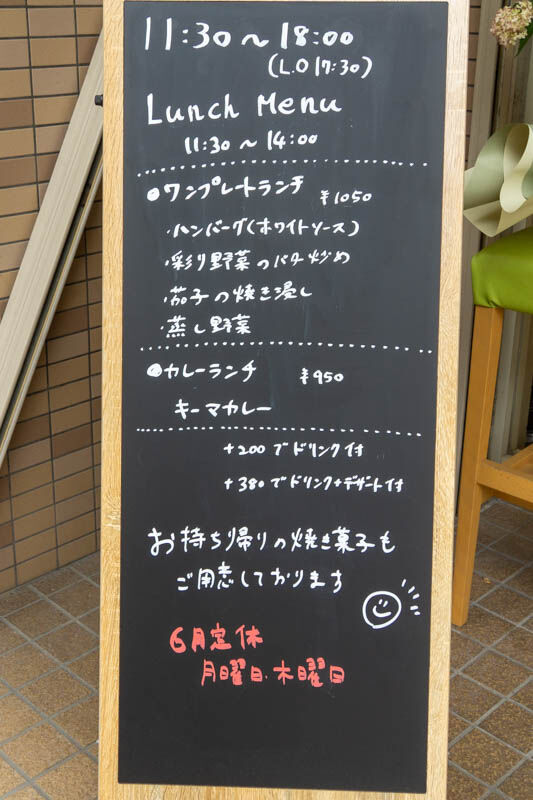 11:30〜18:00
(L.O 17:30)
Lunch Menu
11:30〜14:00
●ワンプレートランチ ¥1050
・ハンバーグ(ホワイトソース)
・彩り野菜のバター炒め
・茄子の焼き浸し
・蒸し野菜
●カレーランチ ¥950
キーマカレー
+200でドリンク付
+380でドリンク+デザート付
お持ち帰りの焼き菓子も
ご用意しております
6月定休
月曜日・木曜日